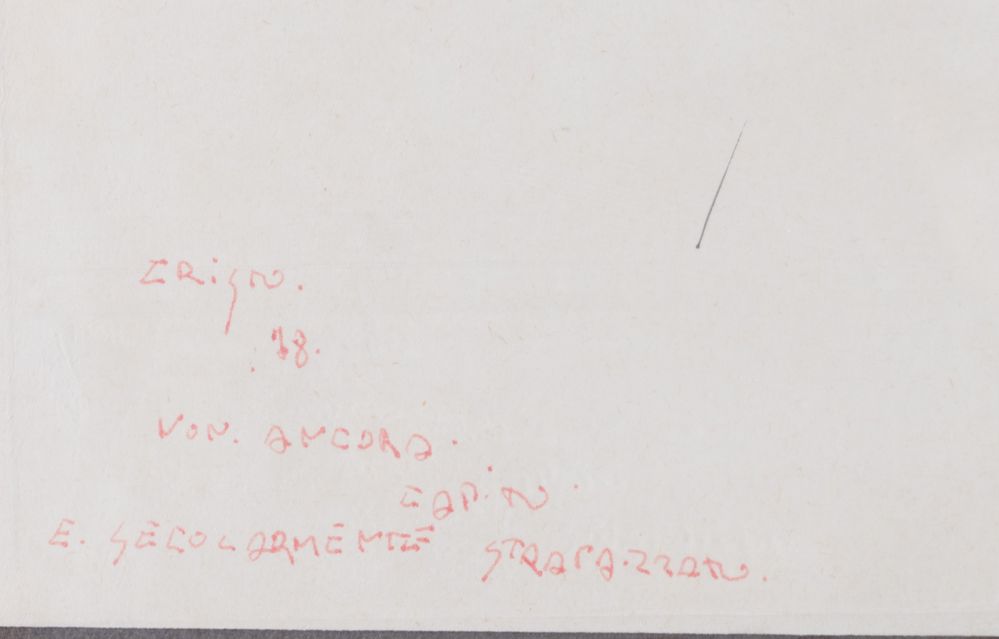 CRISTO.
. 78.
NON. ANCORA.
CAPITO.
E. SECOLARMENTE STRAPAZZATO.